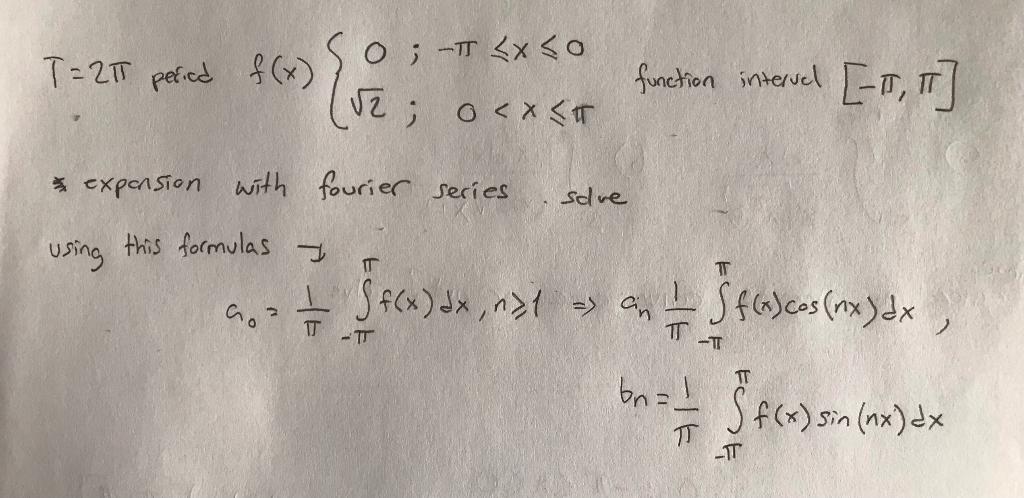 T=2π period f(x) { 0 ; -π ≤ x ≤ 0
√2 ; 0 < x ≤ π
function interval [-π, π]
* expansion with fourier series . solve
using this formulas →
a₀ = 1/π ∫_{-π}^{π} f(x) dx , n≥1 ⇒ aₙ 1/π ∫_{-π}^{π} f(x) cos(nx) dx ,
bₙ = 1/π ∫_{-π}^{π} f(x) sin(nx) dx